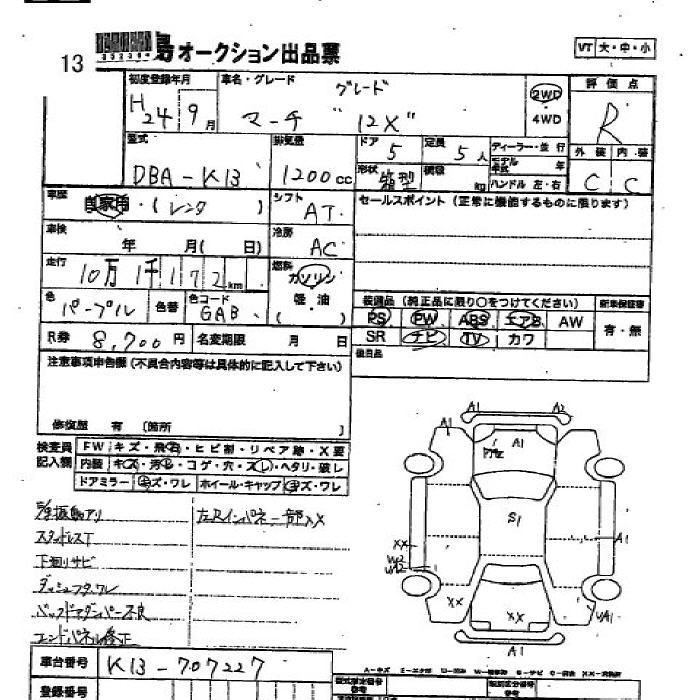 13
オークション出品票
VT 大・中・小
初度登録年月 H24 9月
車名・グレード グレード
マーチ "12X"
2WD
4WD
評価点 R
型式 DBA-K13
排気量 1200cc
ドア 5
定員 5人
形状 箱型
積載 kg
ディーラー・並行
モデル年式 年
ハンドル 左・右
外装 C
内装 C
車歴 自家用・(レンタ )
シフト AT
セールスポイント (正常に機能するものに限ります)
車検 年 月( 日)
冷房 AC
走行 10万1千172km
燃料 ガソリン
軽油
( )
色 パープル
色替
色コード GAB
装備品 (純正品に限り○をつけてください)
新車保証書
PS PW ABS エアB AW
有・無
SR ナビ TV カワ
R券 8,700円
名変期限 月 日
後日品
注意事項申告欄 (不具合内容等は具体的に記入して下さい)
修復歴 有 (箇所 )
検査員記入欄
FW キズ・飛石・ヒビ割・リペア跡・X要
内装 キズ・汚レ・コゲ・穴・スレ・ヘタリ・破レ
ドアミラー キズ・ワレ ホイール・キャップ キズ・ワレ
スタッドレスT
左Rインパネ一部XX
下廻りサビ
バックドアダンパー不良
エンドパネル修正
A1 A2
A1 A1
S1
XX A1
W2
XX XX
A1
車台番号 K13-707227
登録番号